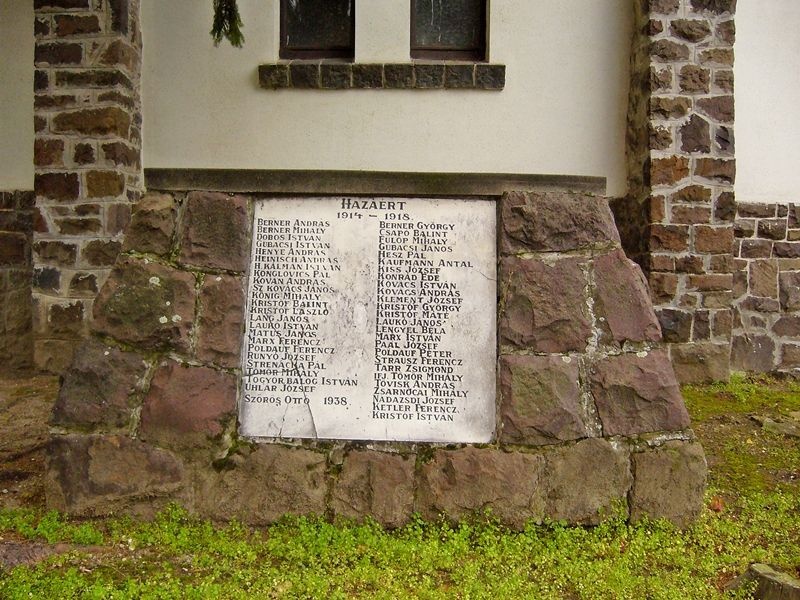 HAZÁÉRT
1914 – 1918.
BERNER ANDRÁS
BERNER MIHÁLY
DOBOS ISTVÁN
GUBACSI ISTVÁN
HENYE ANDRÁS
HEINISCH ANDRÁS
H. KÁLMÁN ISTVÁN
KOGLOVICS PÁL
KOVÁN ANDRÁS
SZ KOVÁCS JÁNOS
KÖNIG MIHÁLY
KRISTÓF BÁLINT
KRISTÓF LÁSZLÓ
LANG JÁNOS
LAUKÓ ISTVÁN
MATUS JÁNOS
MARX FERENCZ
POLDAUF FERENCZ
RUNYÓ JÓZSEF
STRENÁCHA PÁL
TÖMÖR MIHÁLY
TÓGYÖR BALOG ISTVÁN
UHLÁR JÓZSEF
SZŐRÖS OTTÓ 1938.
BERNER GYÖRGY
CSAPÓ BÁLINT
FÜLÖP MIHÁLY
GUBACSI JÁNOS
HESZ PÁL
KAUFMANN ANTAL
KISS JÓZSEF
KONRÁD EDE
KOVÁCS ISTVÁN
KOVÁCS ANDRÁS
KLEMENT JÓZSEF
KRISTÓF GYÖRGY
KRISTÓF MÁTÉ
LAUKÓ JÁNOS
LENGYEL BÉLA
MARX ISTVÁN
PAÁL JÓZSEF
POLDAUF PÉTER
STRAUSZ FERENCZ
TARR ZSIGMOND
IFJ. TÖMÖR MIHÁLY
TÖVISK ANDRÁS
ZSARNÓCAI MIHÁLY
NÁDAZSDI JÓZSEF
KETLER FERENCZ
KRISTÓF ISTVÁN